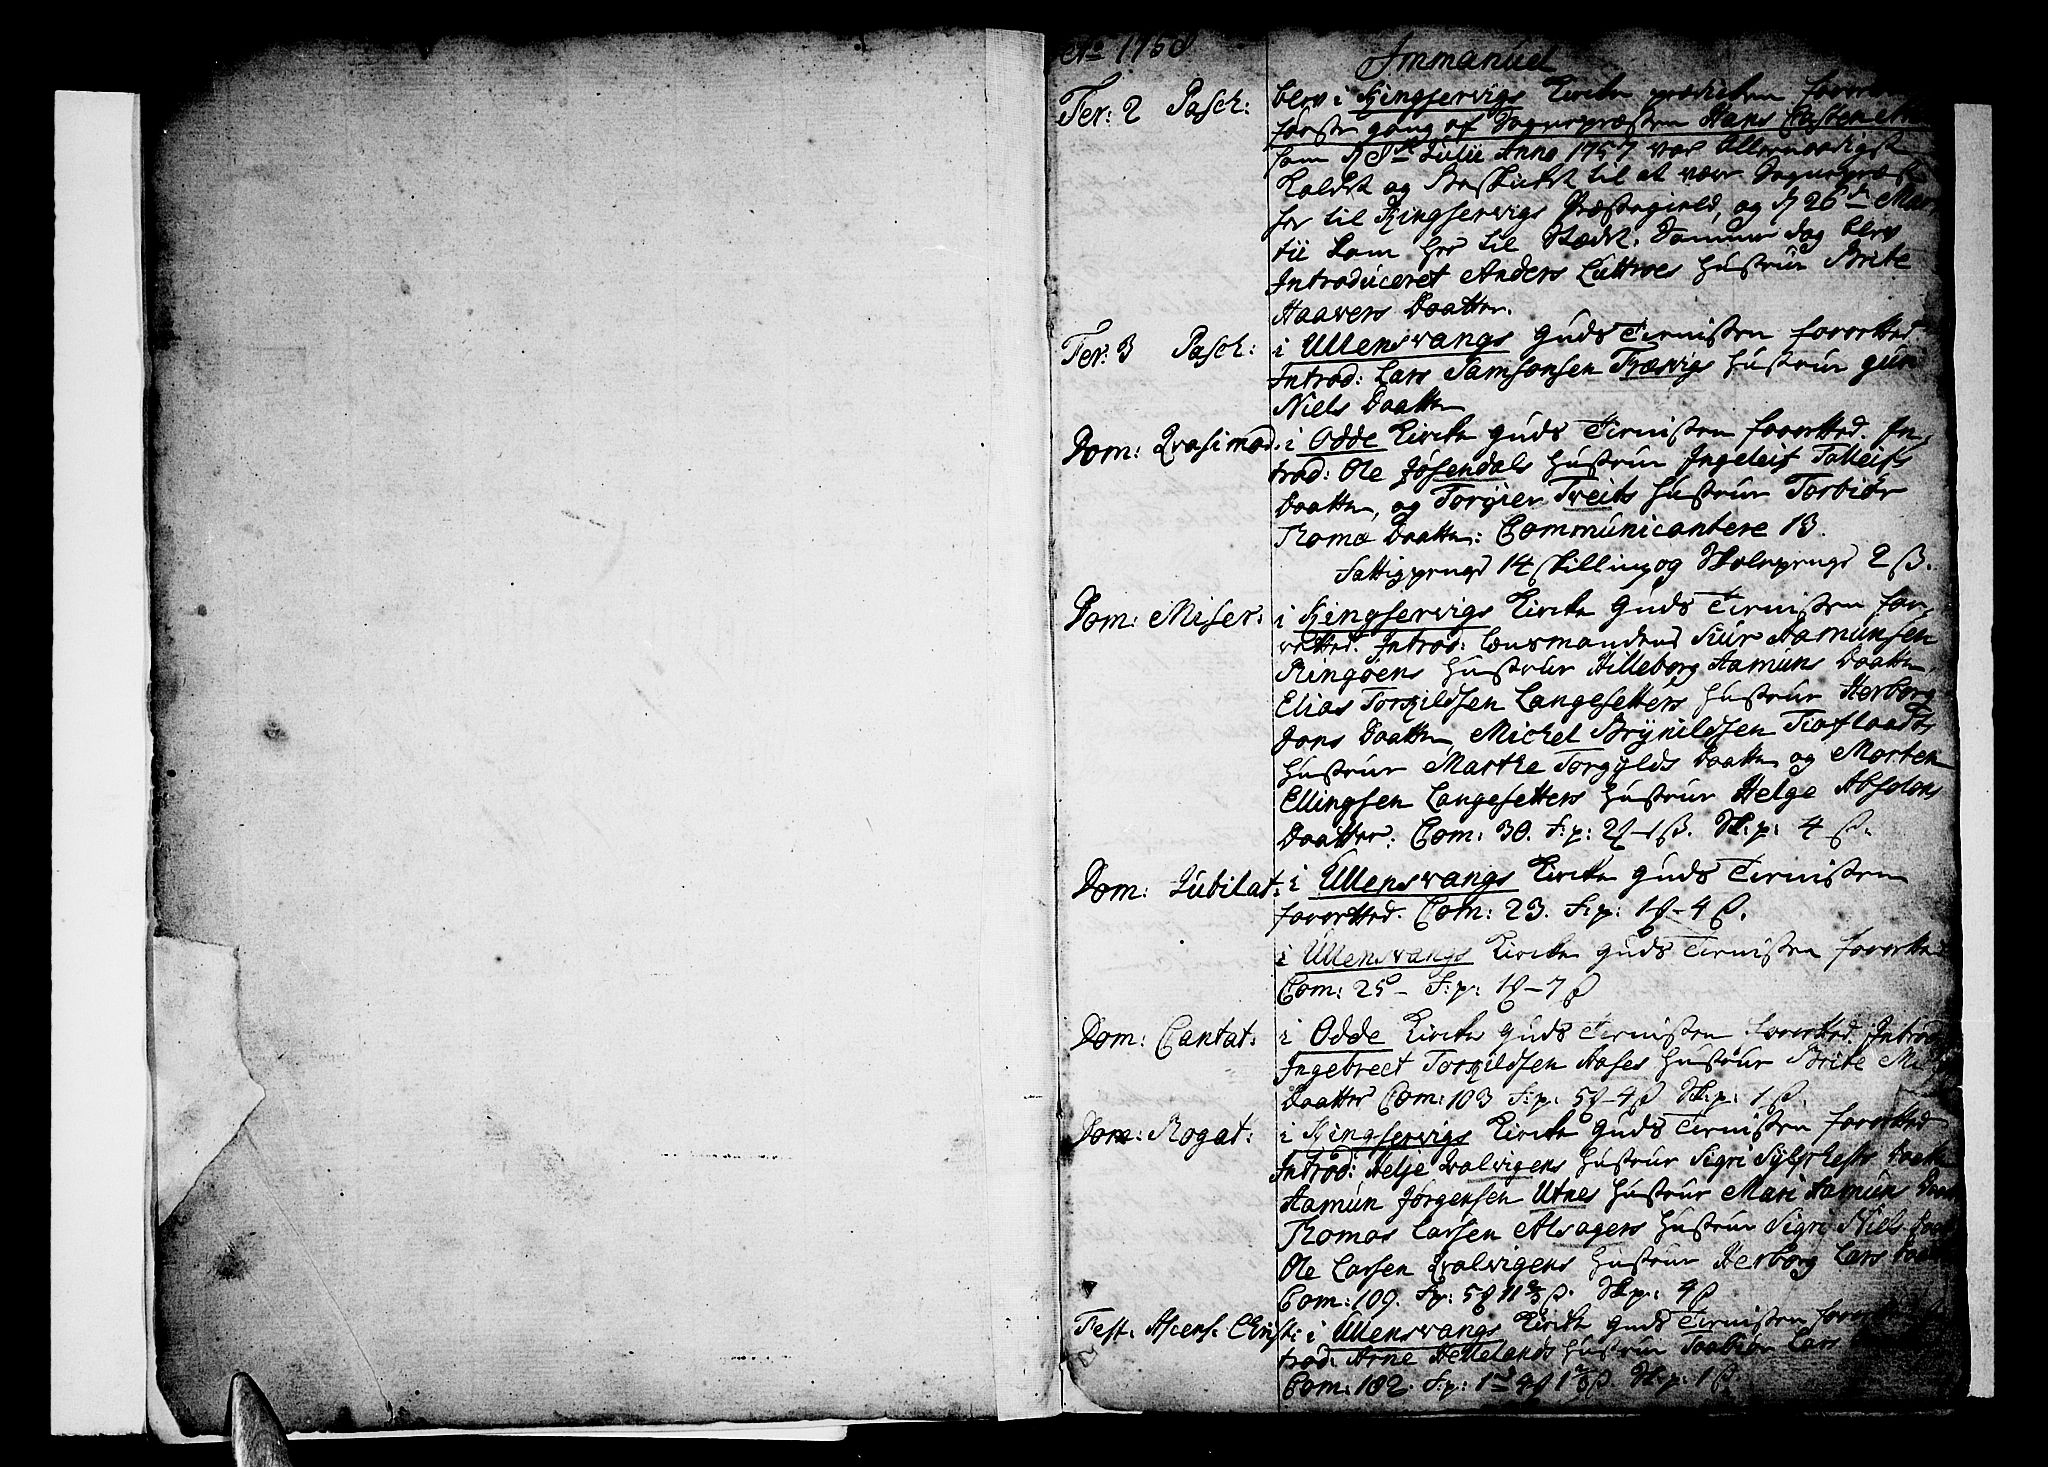 Ao 1758
Immanuel
Fer: 2 Pasch: blev i Kingservigs Kirke prædiken forrettet
første gang af Sognepræsten Hans Casten
som d 8de Julii Anno 1757 var Allernaadigst
Kaldet og Beskicket til at være Sognepræst
her til Kingservigs Præstegield, og d 26de Mar-
tii kom her til Stædet. Samme dag blev
Introduceret Anders Luttroes Hustrue Brite
Haavers Daatter.
Fer: 3 Pasch: i Ullensvangs Guds Tienisten forretted.
Introd: Lars Samsonsen Træsvigs Hustrue Gun
Niels Daatter
Dom: Qvasimod: i Odde Kircke Guds Tienisten forretted. In-
trod: Ole Jøsendals Hustrue Ingeleif Tolleifs
Daatter, og Torgier Treits Hustrue Torbiør
Thomæ Daatter: Communicantere 13.
Fattigpenge 14 skilling og Skolepenge 2 ß.
Dom: Miser: i Kingservigs Kircke Guds Tienisten for-
retted. Introd: Lensmandens Siur Aamunsen
Ringøens Hustrue Hilleborg Aamuns Daatter
Elias Torkildsen Langesetters Hustrue Herborg
Jons Daatter, Michel Brynildsen Tioflaadts
Hustrue Marthe Torgylds Daatter og Morten
Ellingsen Langesetters Hustrue Helge Absolons
Daatter: Com: 30. F:p: 2 ₰ - 1 ß. Sk:p: 4 ß.
Dom: Jubilat: i Ullensvangs Kircke Guds Tienisten
forretted. Com: 23. F:p: 1 ₰ - 4 ß.
i Ullensvangs Kircke Guds Tienisten forretted
Com: 25 - F:p: 1 ₰ - 7 ß
Dom: Cantat: i Odde Kircke Guds Tienisten forretted. Introd
Ingebrect Torkildsen Aases Hustrue Brite
Daatter Com: 103 F:p: 5 ₰ - 4 ß Sk:p: 1 ß.
Dom: Rogat: i Kingservigs Kircke Guds Tienisten forretted
Introd: Helje Qvalvigens Hustrue Sigri Sylphest Daatter
Aamun Jørgensen Utnes Hustrue Mari Aamuns Daatter
Thomas Larsen Alsagers Hustrue Sigri Niels Daatter
Ole Larsen Qvalvigens Hustrue Herborg Lars Daatter
Com: 109. F:p: 5 ₰ 11 2/3 ß. Sk:p: 4 ß
Fest. Ascens. Christ: i Ullensvangs Kircke Guds Tienisten forretted In-
trod: Arne Hellelands Hustrue Torbiør Lars
Com: 182. F:p: 1 rd 4 ₰ 1 2/3 ß Sk:p: 1 ß.